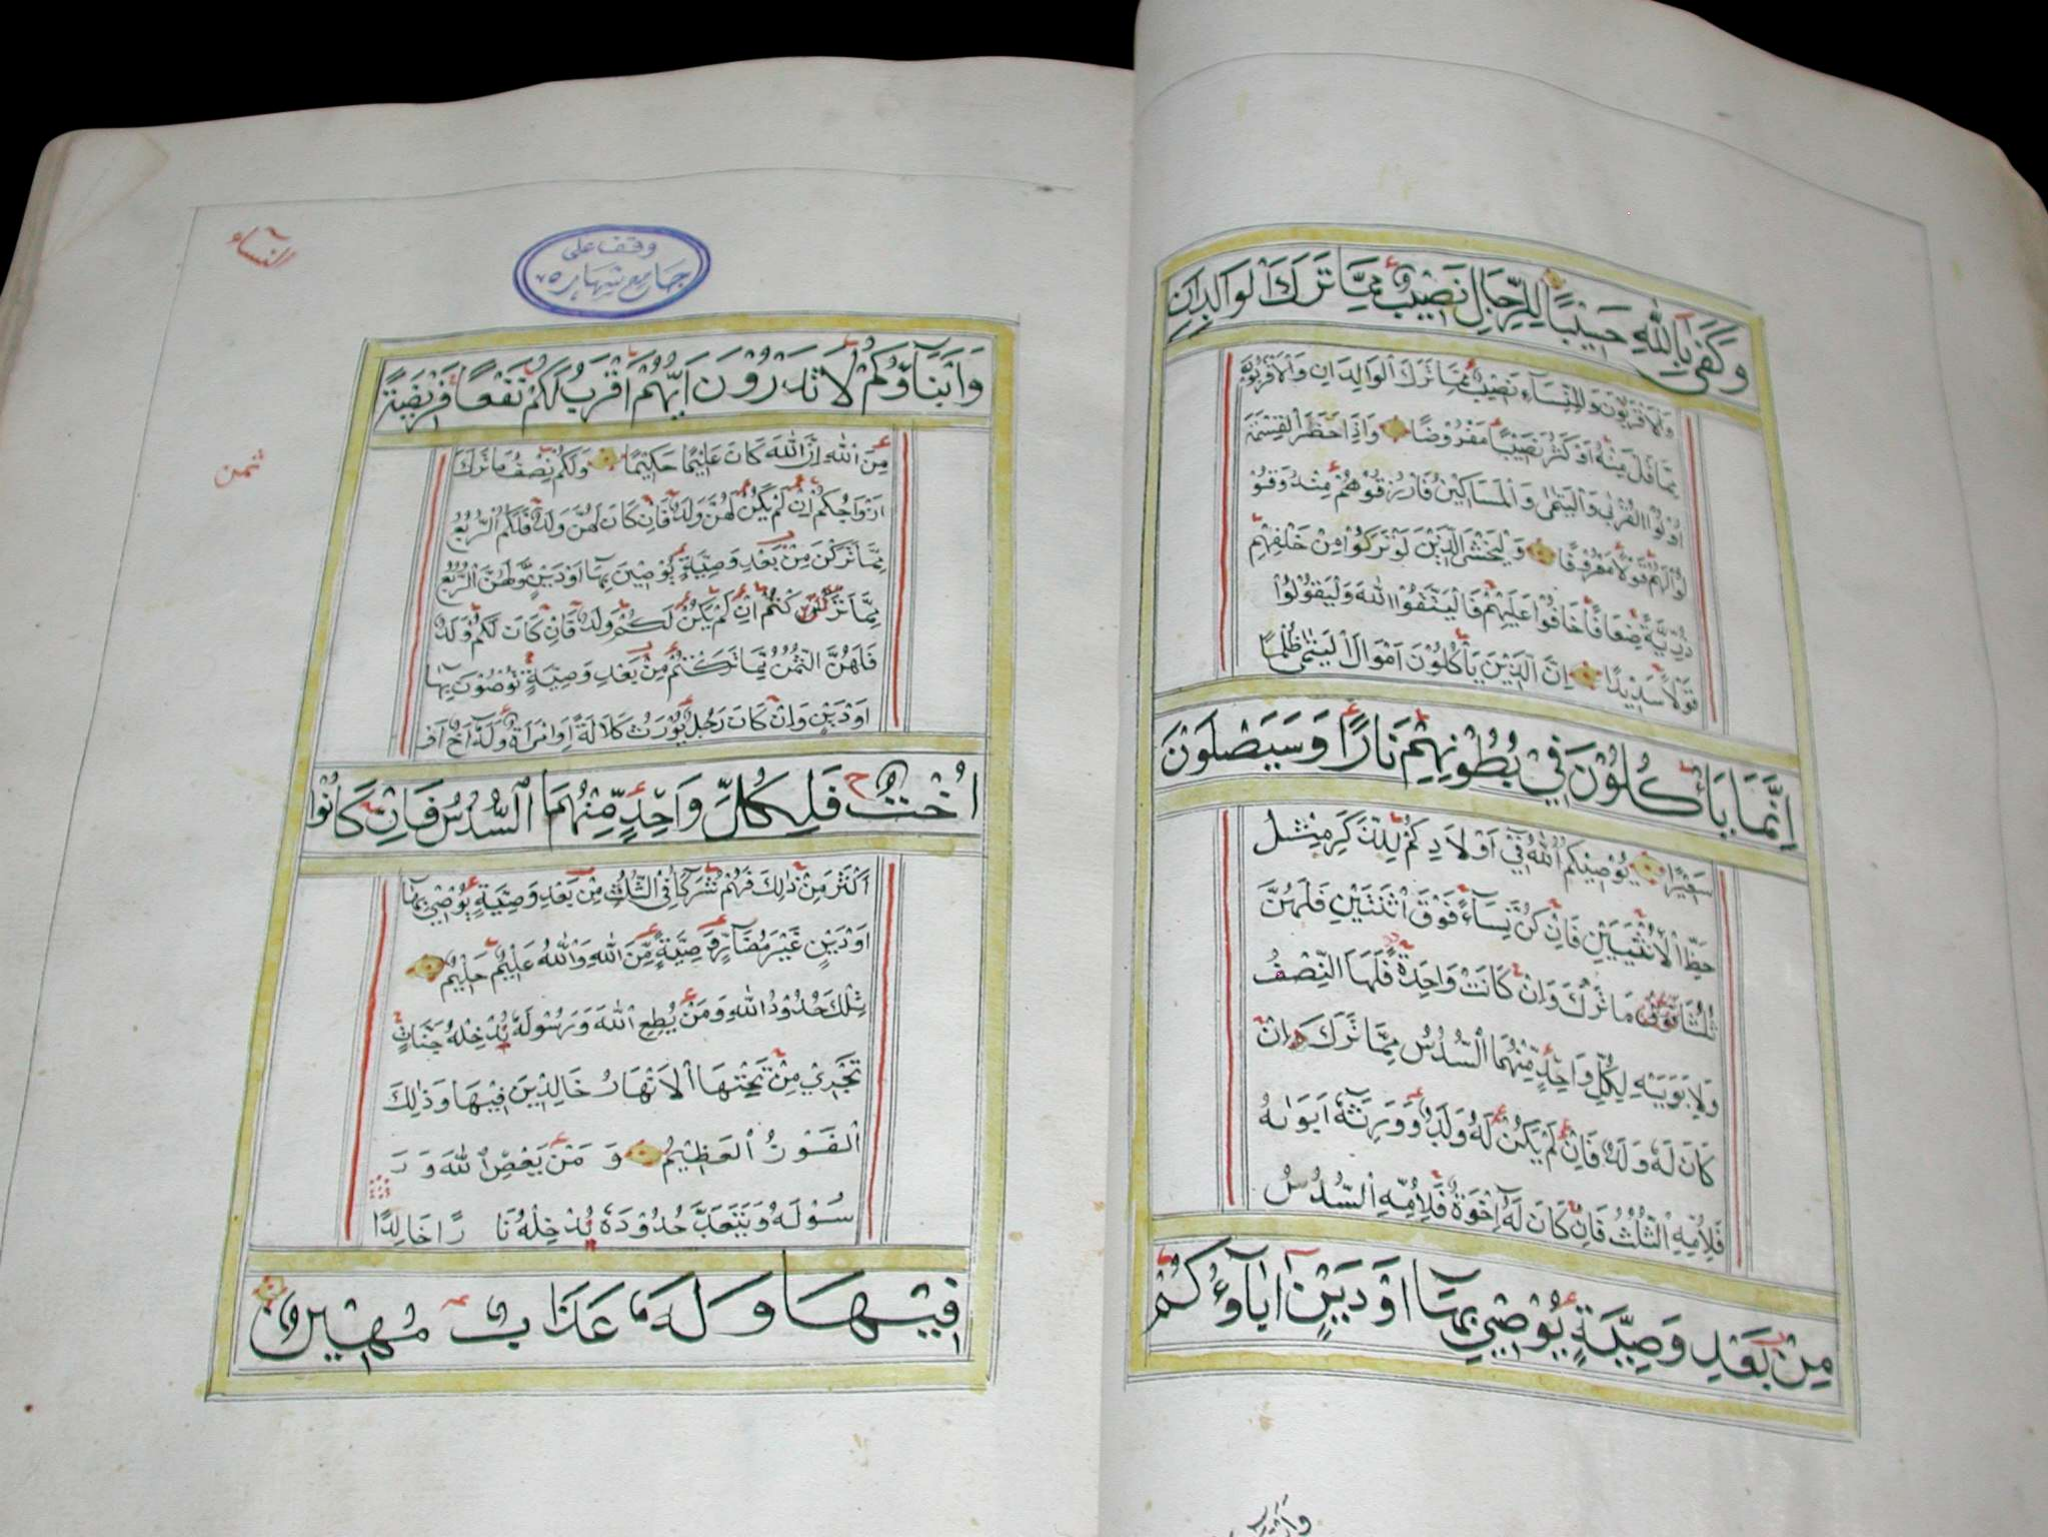 وَكَفَى بِاللّٰهِ حَسِيْبًا لِلرِّجَالِ نَصِيْبٌ مِمَّا تَرَكَ الْوَالِدَانِ
وَالْاَقْرَبُوْنَ وَلِلنِّسَآءِ نَصِيْبٌ مِمَّا تَرَكَ الْوَالِدَانِ وَالْاَقْرَبُوْنَ
مِمَّا قَلَّ مِنْهُ اَوْ كَثُرَ نَصِيْبًا مَفْرُوْضًا وَاِذَا حَضَرَ الْقِسْمَةَ
اُولُوا الْقُرْبٰى وَالْيَتٰمٰى وَالْمَسَاكِيْنُ فَارْزُقُوْهُمْ مِنْهُ وَقُوْ
لُوْا لَهُمْ قَوْلًا مَعْرُوْفًا وَلْيَخْشَ الَّذِيْنَ لَوْ تَرَكُوْا مِنْ خَلْفِهِمْ
ذُرِّيَّةً ضِعَافًا خَافُوْا عَلَيْهِمْ فَالْيَتَّقُوا اللّٰهَ وَلْيَقُوْلُوْا
قَوْلًا سَدِيْدًا اِنَّ الَّذِيْنَ يَأْكُلُوْنَ اَمْوَالَ الْيَتٰمٰى ظُلْمًا
اِنَّمَا يَأْكُلُوْنَ فِيْ بُطُوْنِهِمْ نَارًا وَسَيَصْلَوْنَ
سَعِيْرًا يُوْصِيْكُمُ اللّٰهُ فِيْ اَوْلَادِكُمْ لِلذَّكَرِ مِثْلُ
حَظِّ الْاُنْثَيَيْنِ فَاِنْ كُنَّ نِسَآءً فَوْقَ اثْنَتَيْنِ فَلَهُنَّ
ثُلُثَا مَا تَرَكَ وَاِنْ كَانَتْ وَاحِدَةً فَلَهَا النِّصْفُ
وَلِاَبَوَيْهِ لِكُلِّ وَاحِدٍ مِّنْهُمَا السُّدُسُ مِمَّا تَرَكَ اِنْ
كَانَ لَهٗ وَلَدٌ فَاِنْ لَمْ يَكُنْ لَهُ وَلَدٌ وَوَرِثَهٗ اَبَوَاهُ
فَلِاُمِّهِ الثُّلُثُ فَاِنْ كَانَ لَهٗ اِخْوَةٌ فَلِاُمِّهِ السُّدُسُ
مِنْ بَعْدِ وَصِيَّةٍ يُوْصِيْ بِهَا اَوْ دَيْنٍ اٰبَآؤُكُمْ
النسآء
وقف على
جامع شهاره
ثمن
وَاَبْنَآؤُكُمْ لَا تَدْرُوْنَ اَيُّهُمْ اَقْرَبُ لَكُمْ نَفْعًا فَرِيْضَةً
مِنَ اللّٰهِ اِنَّ اللّٰهَ كَانَ عَلِيْمًا حَكِيْمًا وَلَكُمْ نِصْفُ مَا تَرَكَ
اَزْوَاجُكُمْ اِنْ لَمْ يَكُنْ لَهُنَّ وَلَدٌ فَاِنْ كَانَ لَهُنَّ وَلَدٌ فَلَكُمُ الرُّبُعُ
مِمَّا تَرَكْنَ مِنْ بَعْدِ وَصِيَّةٍ يُوْصِيْنَ بِهَا اَوْ دَيْنٍ وَّلَهُنَّ الرُّبُعُ
مِمَّا كُنْتُمْ اِنْ لَمْ يَكُنْ لَكُمْ وَلَدٌ فَاِنْ كَانَ لَكُمْ وَلَدٌ
فَلَهُنَّ الثُّمُنُ مِمَّا تَرَكْتُمْ مِنْ بَعْدِ وَصِيَّةٍ تُوْصُوْنَ بِهَا
اَوْ دَيْنٍ وَاِنْ كَانَ رَجُلٌ يُوْرَثُ كَلَالَةً اَوِ امْرَاَةٌ وَلَهٗ اَخٌ اَوْ
اُخْتٌ فَلِكُلِّ وَاحِدٍ مِّنْهُمَا السُّدُسُ فَاِنْ كَانُوْا
اَكْثَرَ مِنْ ذٰلِكَ فَهُمْ شُرَكَآءُ فِي الثُّلُثِ مِنْ بَعْدِ وَصِيَّةٍ يُوْصٰى بِهَا
اَوْ دَيْنٍ غَيْرَ مُضَآرٍّ وَصِيَّةً مِّنَ اللّٰهِ وَاللّٰهُ عَلِيْمٌ حَلِيْمٌ
تِلْكَ حُدُوْدُ اللّٰهِ وَمَنْ يُطِعِ اللّٰهَ وَرَسُوْلَهٗ يُدْخِلْهُ جَنَّاتٍ
تَجْرِيْ مِنْ تَحْتِهَا الْاَنْهَارُ خَالِدِيْنَ فِيْهَا وَذٰلِكَ
الْفَوْزُ الْعَظِيْمُ وَمَنْ يَعْصِ اللّٰهَ وَرَ
سُوْلَهُ وَيَتَعَدَّ حُدُوْدَهٗ يُدْخِلْهُ نَارًا خَالِدًا
فِيْهَا وَلَهٗ عَذَابٌ مُهِيْنٌ